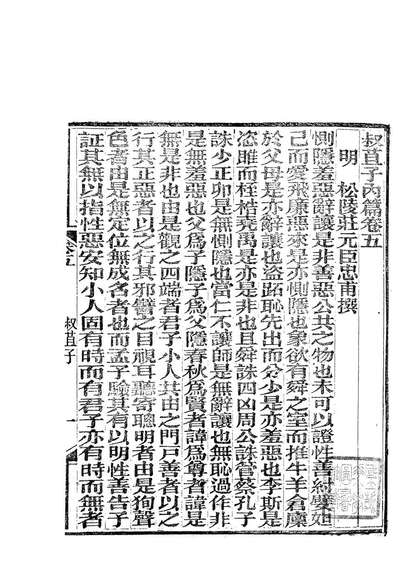 叔苴子內篇卷五
明　松陵莊元臣忠甫撰
惻隱羞惡辭讓是非善惡公共之物也未可以證性善紂嬖妲
己而愛飛廉惡來是亦惻隱也象欲有舜之室而推牛羊倉廩
於父母是亦辭讓也盜跖恥先出而分少是亦羞惡也李斯是
恣睢而桎梏堯禹是亦是非也且舜誅四凶周公誅管蔡孔子
誅少正卯是無惻隱也當仁不讓師是無辭讓也無恥過作非
是無羞惡也父為子隱子為父隱春秋為賢者諱為尊者諱是
無是非也由是觀之四端者君子小人共由之門戶善者以之
行其正惡者以之行其邪譬之目視耳聽寄聰明者由是狥聲
色者由是無定位無成名者也而孟子驗其有以明性善告子
証其無以指性惡安知小人固有時而有君子亦有時而無者
卷五　叔苴子　一